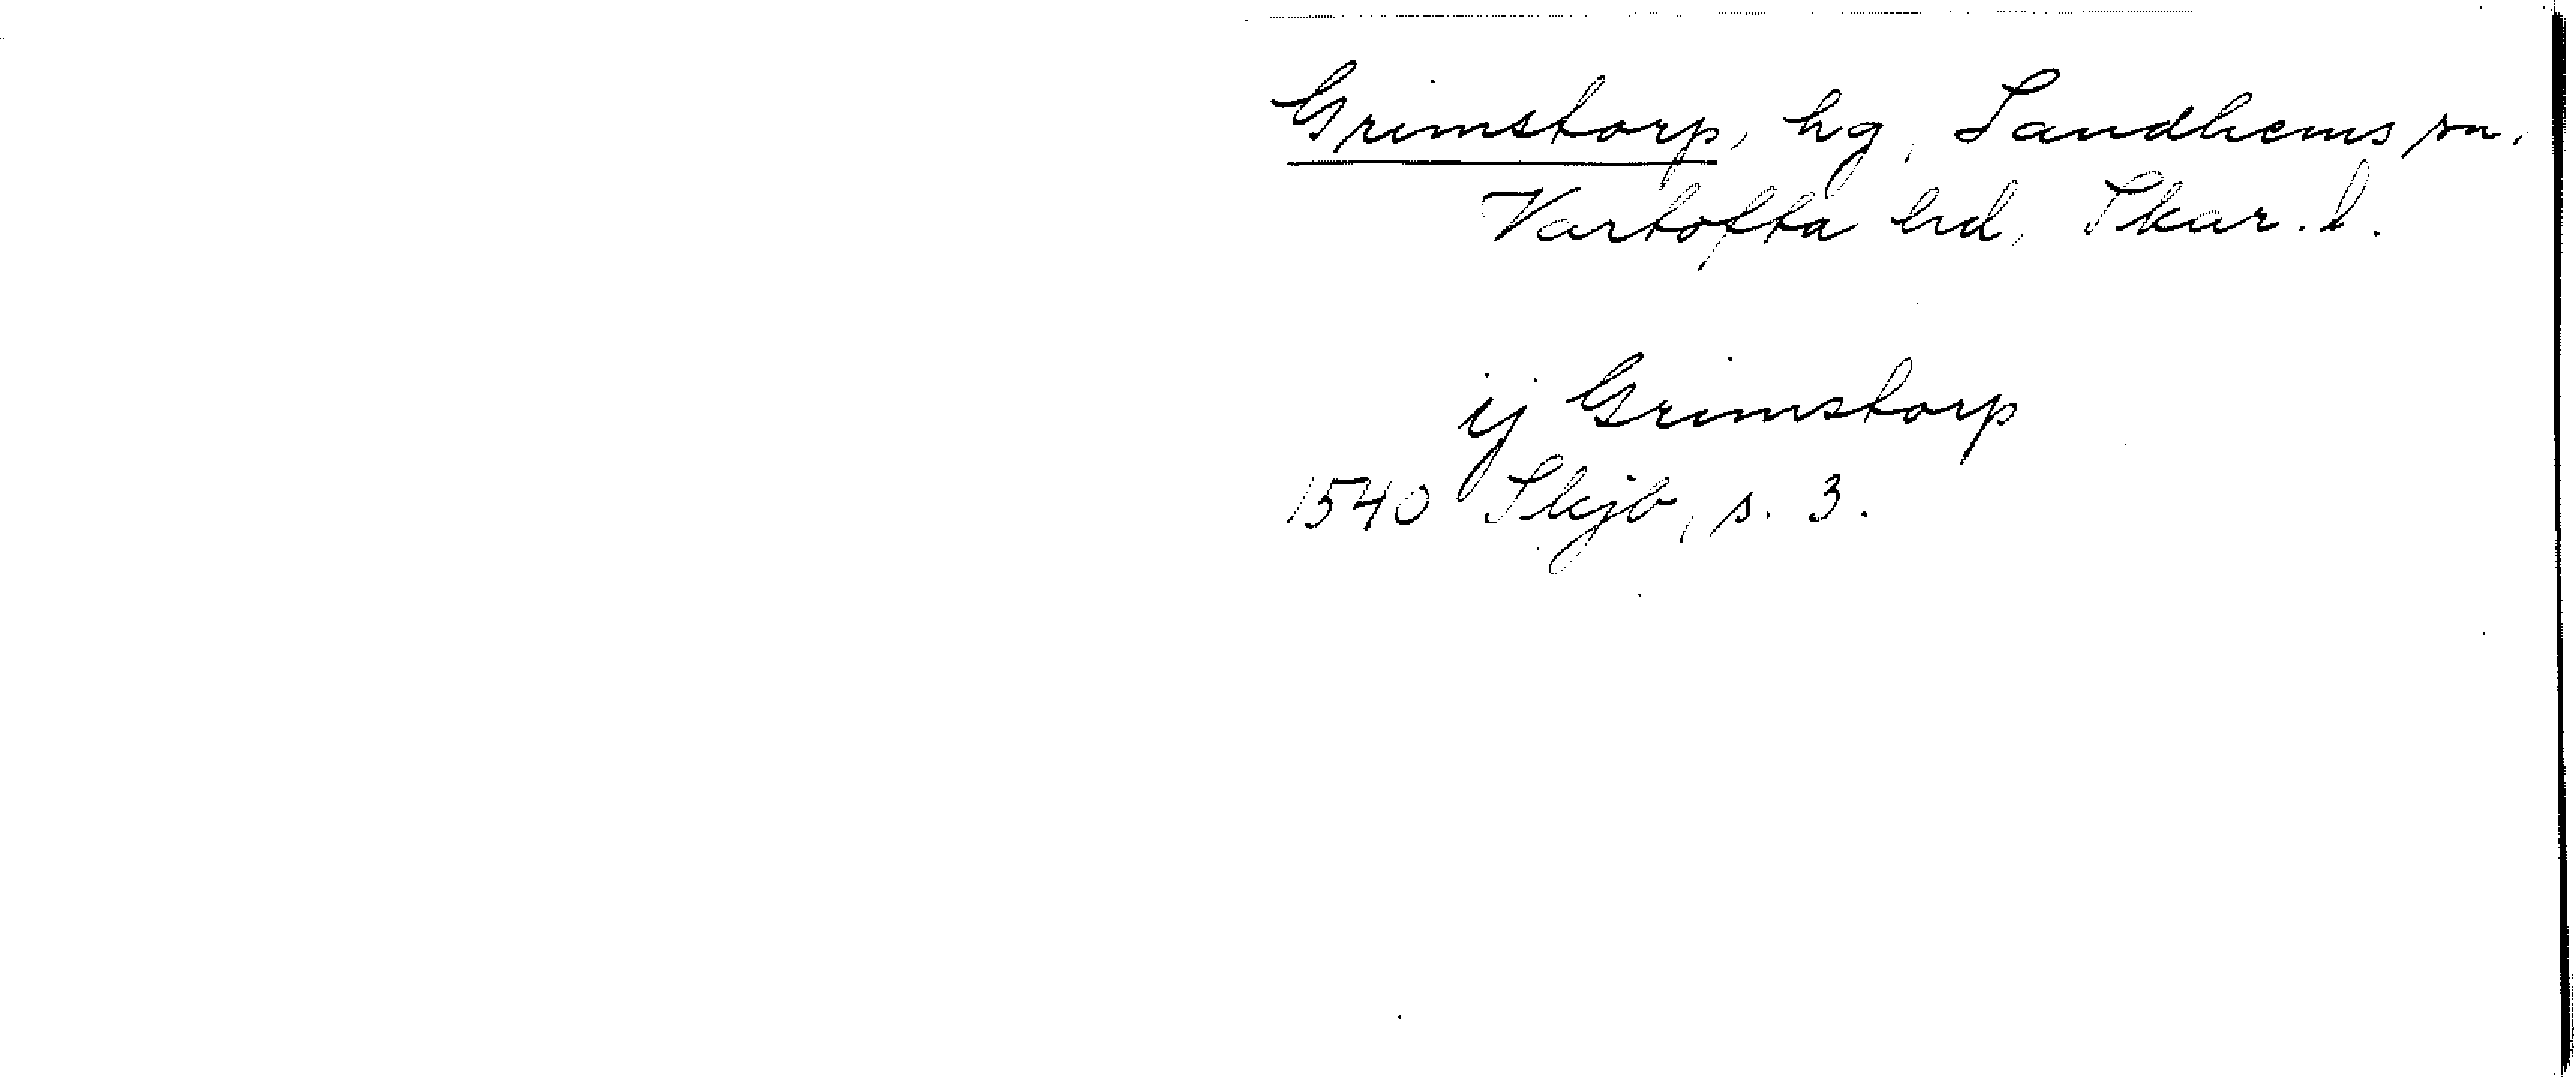 Grimstorp, hg, Sandhems sn,
Vartofta hd, Skar. l.
ij Grimstorp
1540 Skjb, s. 3.